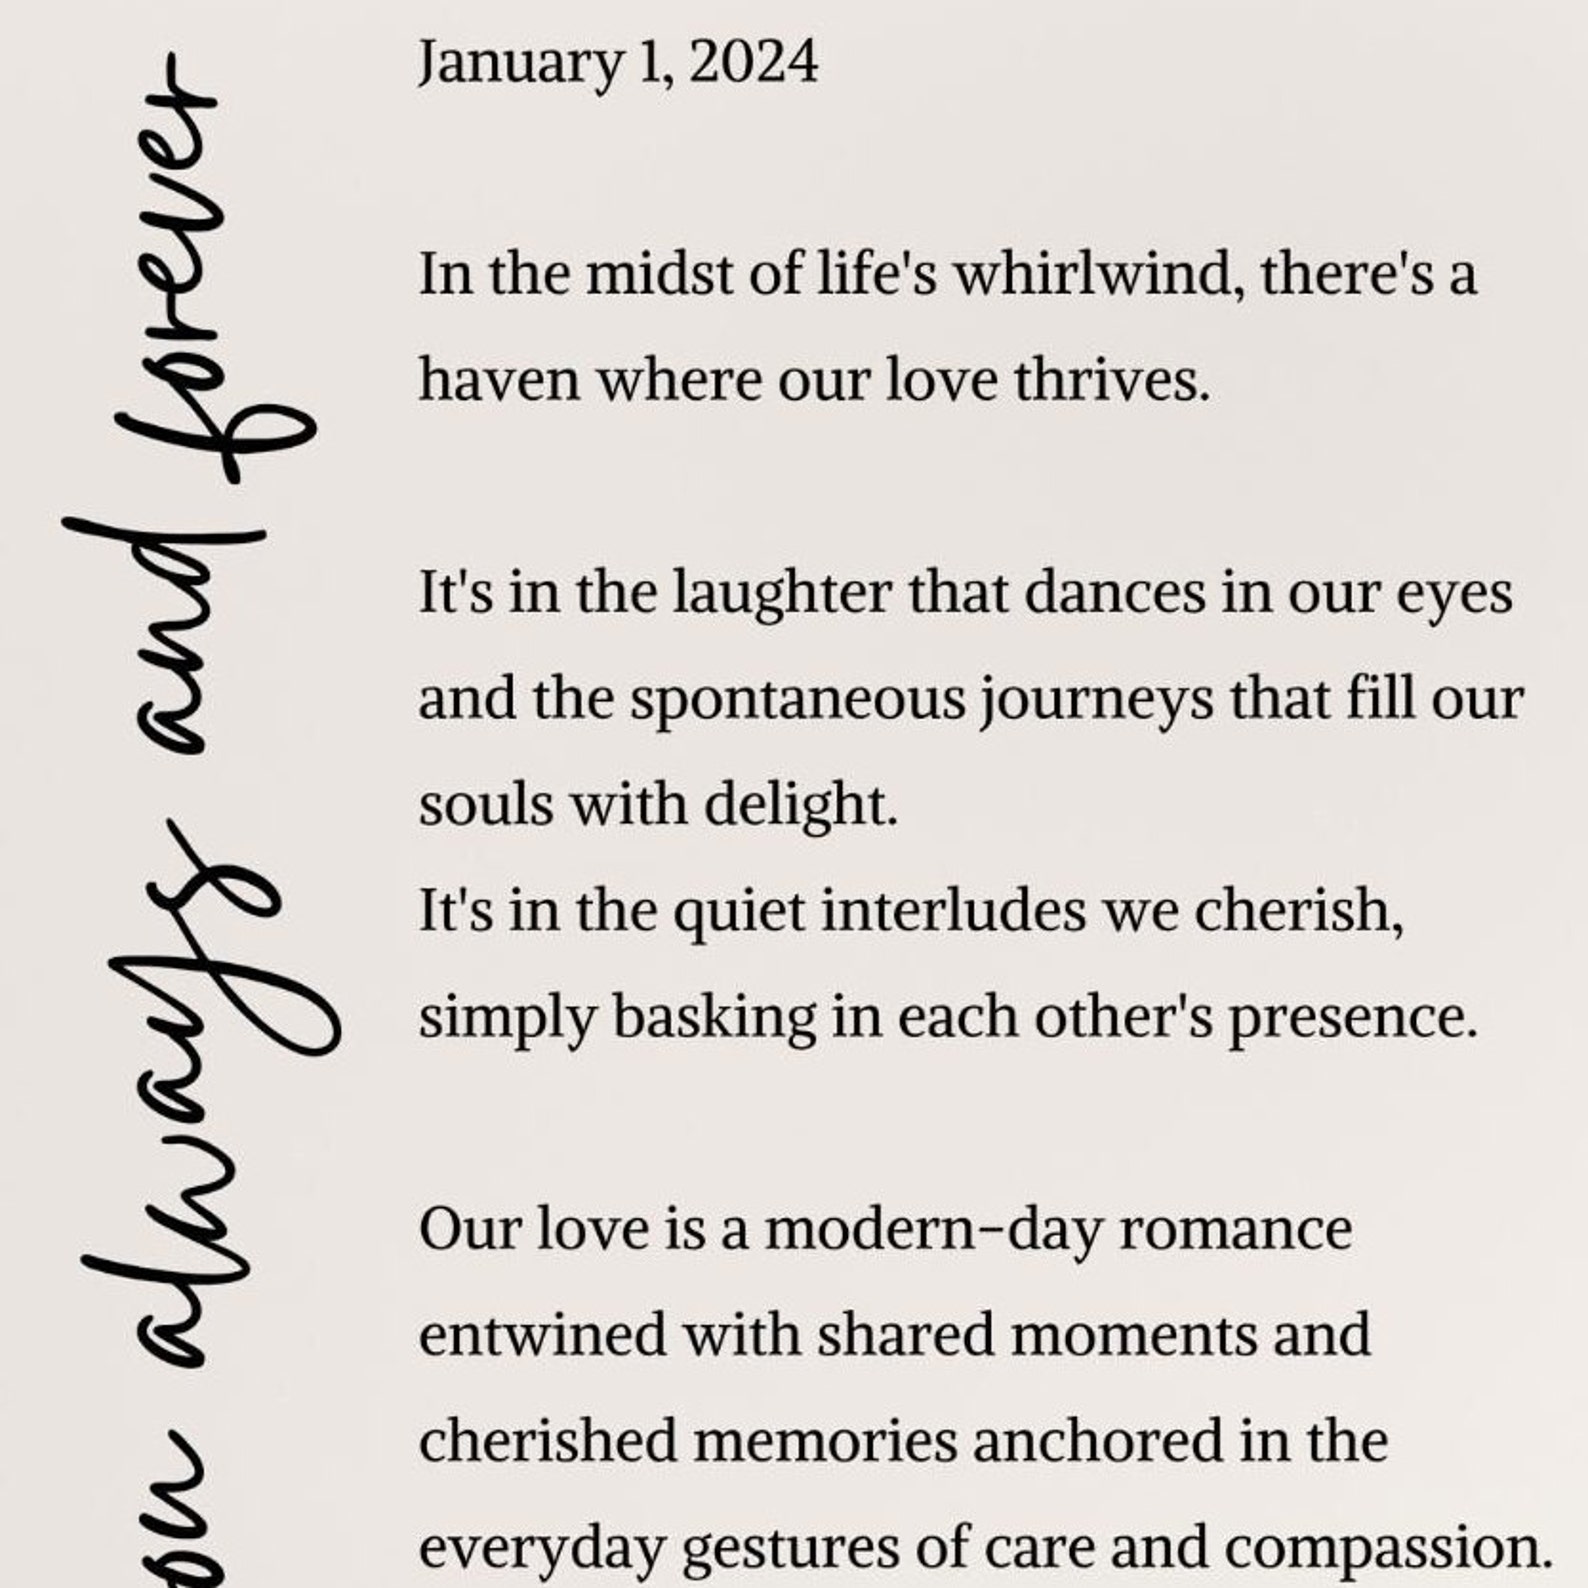 always and forever
January 1, 2024
In the midst of life's whirlwind, there's a
haven where our love thrives.
It's in the laughter that dances in our eyes
and the spontaneous journeys that fill our
souls with delight.
It's in the quiet interludes we cherish,
simply basking in each other's presence.
Our love is a modern-day romance
entwined with shared moments and
cherished memories anchored in the
everyday gestures of care and compassion.